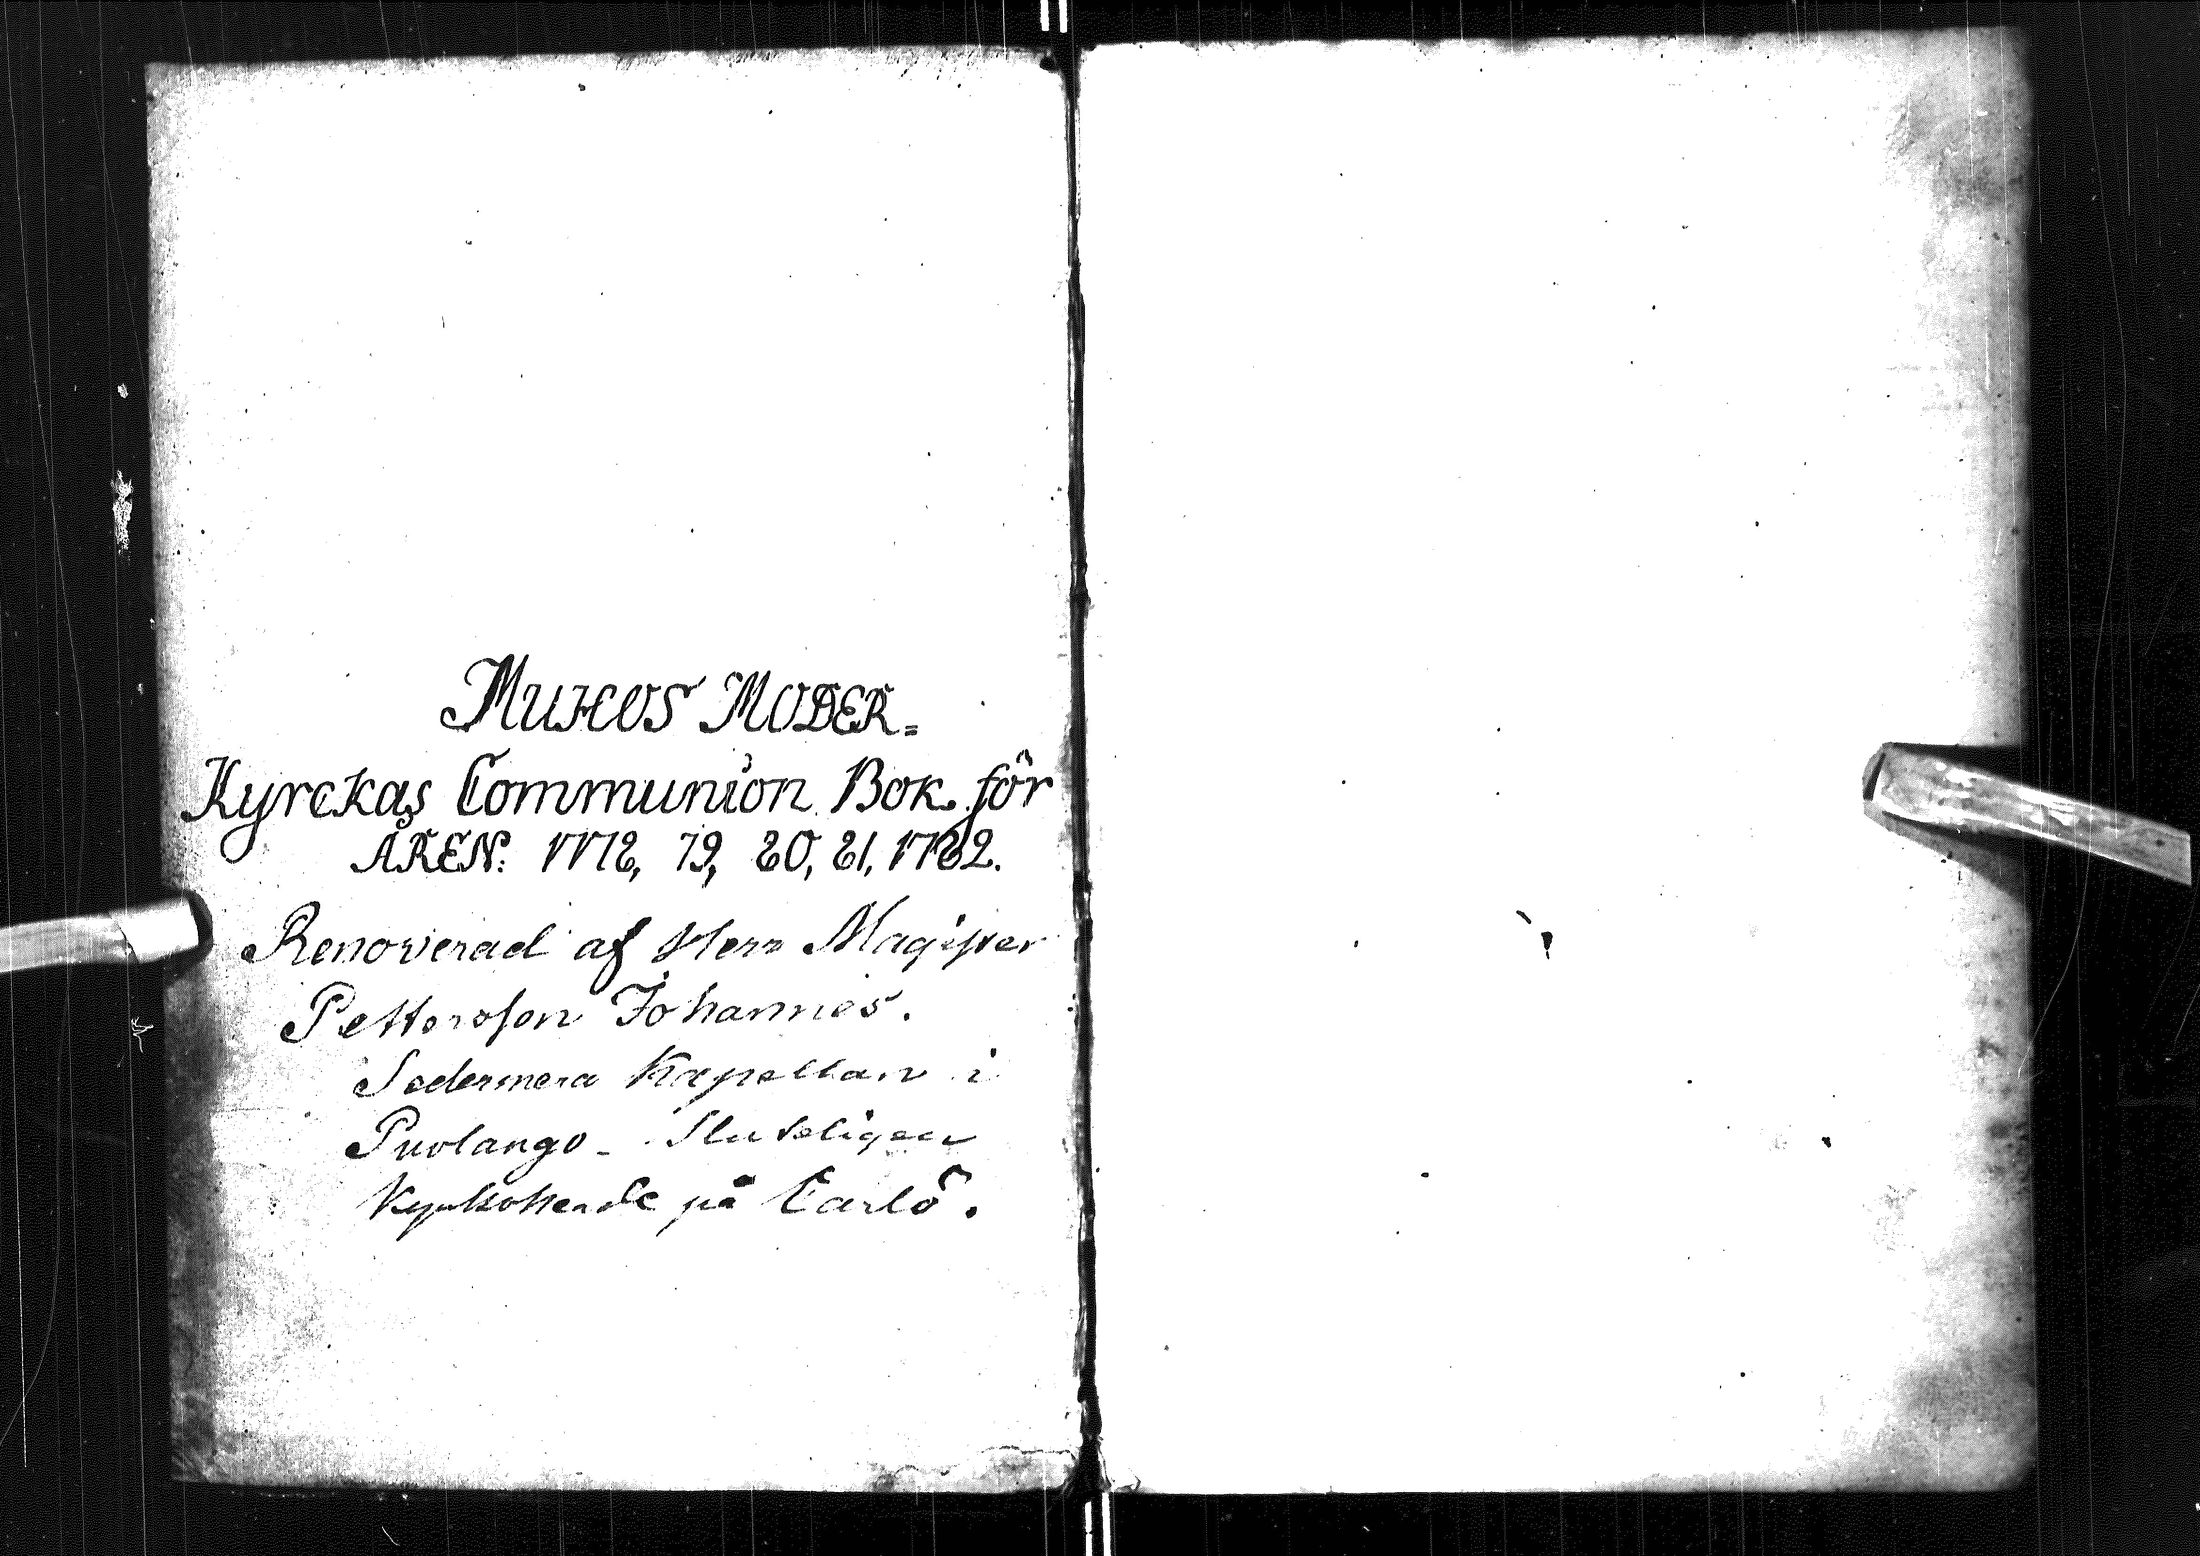 MUHOS MODER=
Kyrckas Communion Bok för
ÅREN: 1778, 79, 80, 81, 1782.
Renoverad af Herr Magister
Petterssen Johannes.
Sedermera Kapellan i
Puolango – Sluteligen
Kyrkoherde på Carlö.